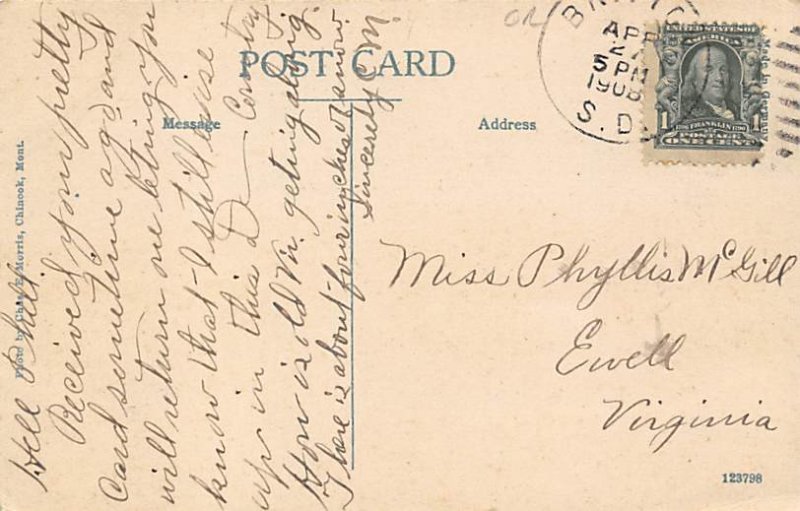 POST CARD
Message
Address
Photo by Chas. E. Morris, Chinook, Mont.
Well Phil
Received your pretty
Card sometime ago and
will return one letting you
know that I still exise
up in this D— Contry
How is old Vir. geting along.
There is about four inches of snow
Sincerely M
APR
5 PM
1908
S.D.
UNITED STATES OF AMERICA
1 FRANKLIN 1
POSTAGE
ONE CENT
Miss Phyllis McGill
Ewell
Virginia
123798